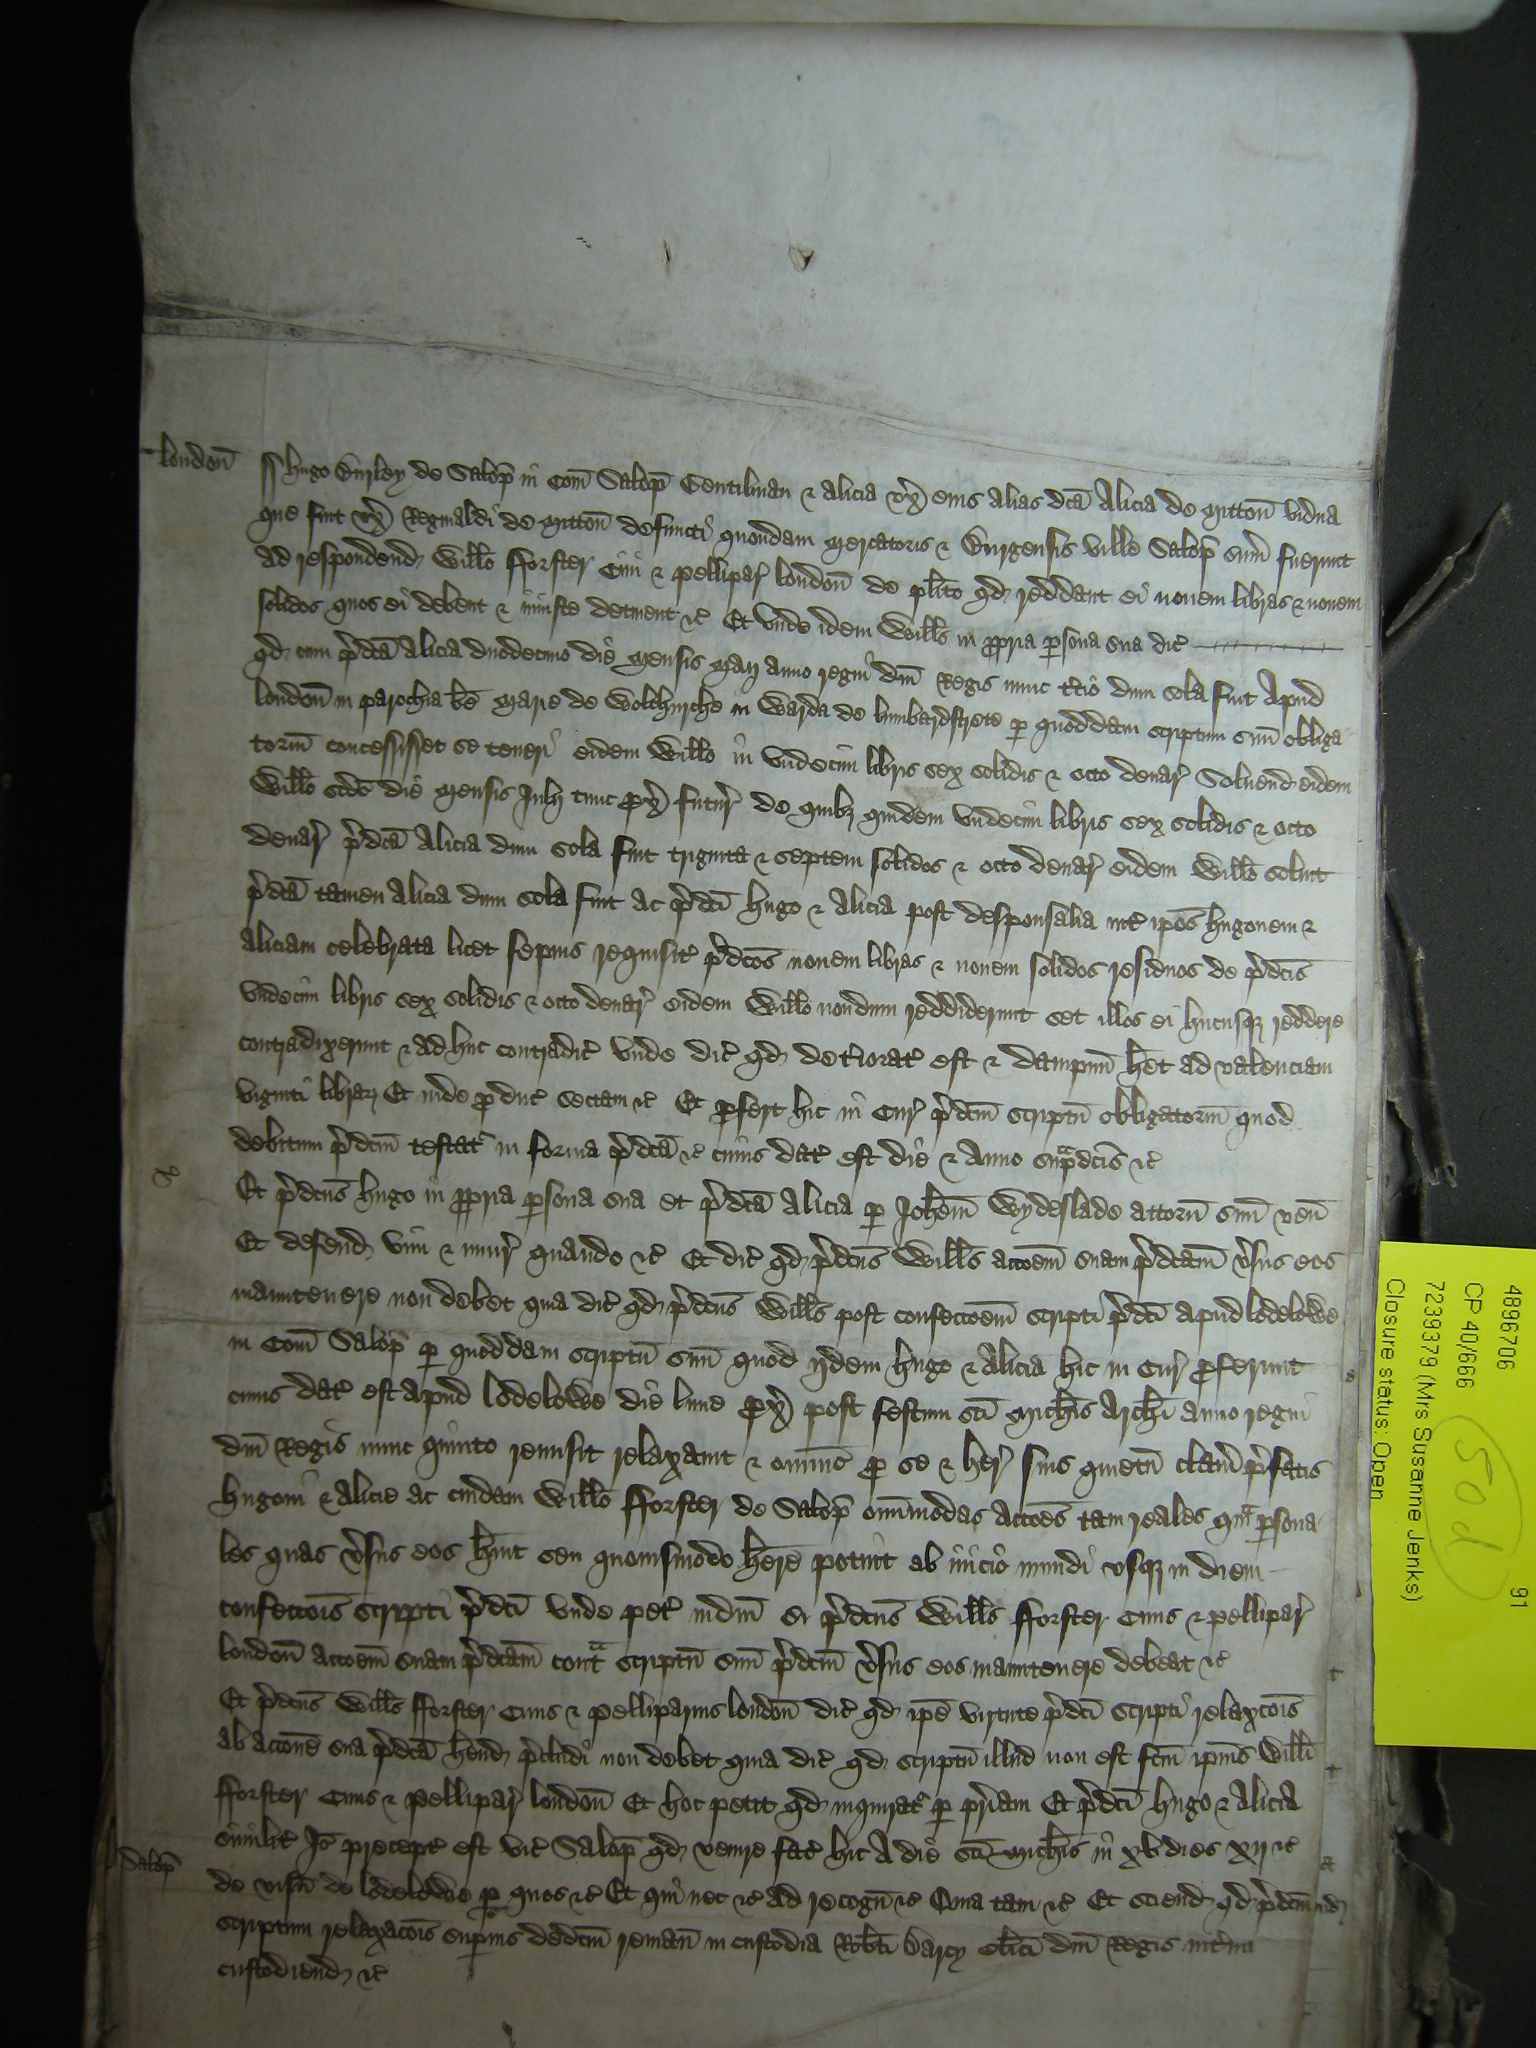 london̄ ss hugo Burley de Salop̄ in Com̄ Salop̄ Gentilman & Alicia ux̄ eius alias dc̄a Alicia de Mitton̄ vidua
que fuit ux̄ Reginaldi de Mitton̄ defuncti quondam Mercatoris & Burgensis ville Salop̄ sum̄ fuerunt
ad respondend̛ Will̄o fforster Ciui & pellipar̄ london̄ de pl̄ito qd̛ reddant ei nouem libras & nouem
solidos quos ei debent & iniuste detinent &c̄ Et vnde idem Will̄s in ꝓpria ꝑsona sua dic̄
qd̛ cum p̄dc̄a Alicia duodecimo die Mensis Maij anno regni dn̄i Regis nunc t̄cio dum sola fuit Apud
london̄ in parochia b̄e Marie de Wolchirche in Warda de lumbardstrete ꝑ quoddam scriptum suu̅ obliga
toriu̅ concessisset se teneri eidem Will̄o in vndecim libris sex solidis & octo denar̄ Soluend̛ eidem
Will̄o sc̄do die Mensis Julij tunc ꝓx̄ futur̄ de quibȝ quidem vndecim libris sex solidis & octo
denar̄ p̄dc̄a Alicia dum sola fuit triginta & septem solidos & octo denar̄ eidem Will̄o soluit
p̄dc̄a tamen Alicia dum sola fuit ac p̄dc̄i hugo & Alicia post desponsalia int̄ ip̄os hugonem &
Aliciam celebrata licet sepius requisit̄ p̄dc̄os nouem libras & nouem solidos residuos de p̄dc̄is
vndecim libris sex solidis & octo denar̄ eidem Will̄o nondum reddiderunt set illos ei hucusqȝ reddere
contradixerunt & ad huc contradic̄ vnde dic̄ qd̛ det̄iorat̄ est & dampnu̅ h̄et ad valenciam
viginti librarꝝ Et inde ꝓduc̄ sectam &c̄ Et ꝓfert hic in Cur̄ p̄dc̄m scriptu̅ obligatoriu̅ quod
debitum p̄dc̄m testat̄ in forma p̄dc̄a &c̄ cuius dat̄ est die & Anno sup̄adc̄is &c̄
Et p̄dc̄us hugo in ꝓpria ꝑsona sua et p̄dc̄a Alicia ꝑ Joh̄em Wydeslade attorn̄ suu̅ ven̄
Et defend̛ vim & iniur̄ quando &c̄ Et dic̄ qd̛ p̄dc̄us Will̄s acc̄oem suam p̄dc̄am v̄sus eos
manutenere non debet quia dic̄ qd̛ p̄dc̄us Will̄s post confecc̄oem scripti p̄dc̄i apud lodelowe
in Com̄ Salop̄ ꝑ quoddam scriptu̅ suu̅ quod ijdem hugo & Alicia hic in Cur̄ ꝓferunt
cuius dat̄ est apud lodelowe die lune ꝓx̄ post festum sc̄i Mich̄is Arch̄i anno regni
dn̄i Regis nunc quinto remisit relaxauit & om̄nio ꝓ se & her̄ suis quietu̅ clam̄ p̄fatis
hugoni & Alicie ac cuidam Will̄o fforster de Salop̄ om̄imodas acc̄oes tam reales qu̅m ꝑsona
les quas v̄sus eos h̄uit seu quouismodo h̄ere potuit ab inicio mundi vsqȝ in diem
confecc̄ois scripti p̄dc̄i vnde pet̄ iudm̄ si p̄dc̄us Will̄s fforster Ciuis & pellipar̄
london̄ acc̄oem suam p̄dc̄am cont̄a scriptu̅ suu̅ p̄dc̄m v̄sus eos manutenere debeat &c̄
Et p̄dc̄us Will̄s fforster Ciuis & Pelliparius london̄ dic̄ qd̛ ip̄e virtute p̄dc̄i scripti relaxac̄ois
ab acc̄one sua p̄dc̄a h̄end̛ p̄cludi non debet quia dic̄ qd̛ scriptu̅ illud non est fc̄m ip̄ius Will̄i
fforster Ciuis & Pellipar̄ london̄ Et hoc petit qd̛ inquirat̄ ꝑ pr̄iam Et p̄dc̄i hugo & Alicia
similit̄ Jō precept̄ est vic̄ Salop̄ qd̛ venire fac̄ hic A die sc̄i Mich̄is in xv dies xij &c̄
Salop̄ de visu̅ de lodelowe ꝑ quos &c̄ Et qui nec &c̄ ad recogn̄ &c̄ Quia tam &c̄ Et sciend̛ qd̛ p̄dc̄m
scriptum relaxac̄ois superius dedc̄m reman̄ in custodia Rob̄ti Darcy cl̄ici dn̄i Regis
custodiend̛ &c̄
4896706 91
CP 40/666
7239379 (Mrs Susanne Jenks)
Closure status: Open
50d